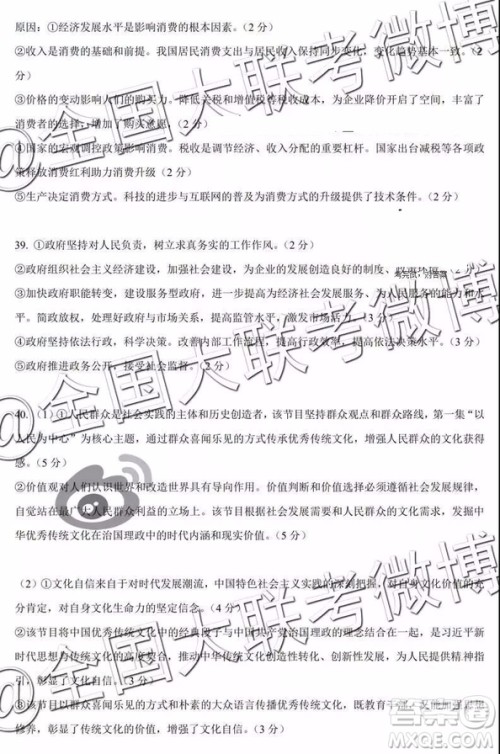 原因：①经济发展水平是影响消费的根本因素。（2 分）
②收入是消费的基础和前提。我国居民消费支出与居民收入保持同步变化，变化趋势基本一致。（2 分）
③价格的变动影响人们的购买力。降低关税和增值税等税收成本，为企业降价开启了空间，丰富了
消费者的选择，增了购买意愿。（2 分）
④国家的宏观调控政策影响消费。税收是调节经济、收入分配的重要杠杆。国家出台减税等各项政
策释放消费红利助力消费升级（2 分）
⑤生产决定消费方式。科技的进步与互联网的普及为消费方式的升级提供了技术条件。（2 分）
39. ①政府坚持对人民负责，树立求真务实的工作作风。（2 分）
②政府组织社会主义经济建设，加强社会建设，为经济发展创造良好的社会环境。
③加快政府职能转变，建设服务型政府，进一步提高为经济服务、为人民服务的能力和水
平。简政放权，并提高监管水平，激发市场活力。（3 分）
④政府坚持依法行政，科学决策。改善内部工作流程，提高决策水平。（3 分）
⑤政府推进政务公开，接受社会监督。（2 分）
40. （1）①人民群众是社会实践的主体和历史创造者，该节目坚持群众观点和群众路线，第一集“以
人民为中心”为核心主题，通过群众喜闻乐见的方式传承优秀传统文化，增强人民群众的文化获得
感。（5 分）
②价值观对人们认识世界和改造世界具有导向作用。价值判断和价值选择必须遵循社会发展规律，
自觉站在最广大人民群众利益的立场上。该节目以人民群众为中心，服务人民群众，发掘中
华优秀传统文化在治国理政中的时代内涵和现实价值。（5 分）
（2）①文化自信来自于对时代发展潮流，中国特色社会主义实践的深刻把握，对自身文化价值的充
分肯定，对自身文化生命力的坚定信念。（4 分）
②该节目将中国优秀传统文化中的经典段子与中国共产党治国理政的重点联系在一起，是习近平新
时代思想与传统文化的高度契合，推动中华传统文化创新性发展，为人民群众提供精神指
引，彰显了文化自信。（3 分）
③该节目以群众喜闻乐见和朴素的大众语言传播优秀传统文化，
修养，彰显了传统文化的价值，增强了文化自信。（3 分）
@全国大联考微博
@全国大联考微博
作业帮
MXQE.COM